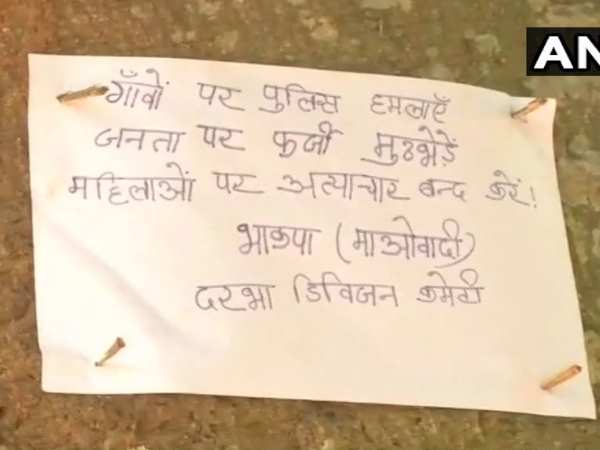 AN
गाँवों पर पुलिस हमलाएँ
जनता पर फर्जी मुठभेड़ें
महिलाओं पर अत्याचार बन्द करें!
भाकपा (माओवादी)
दरभा डिविजन कमेटी